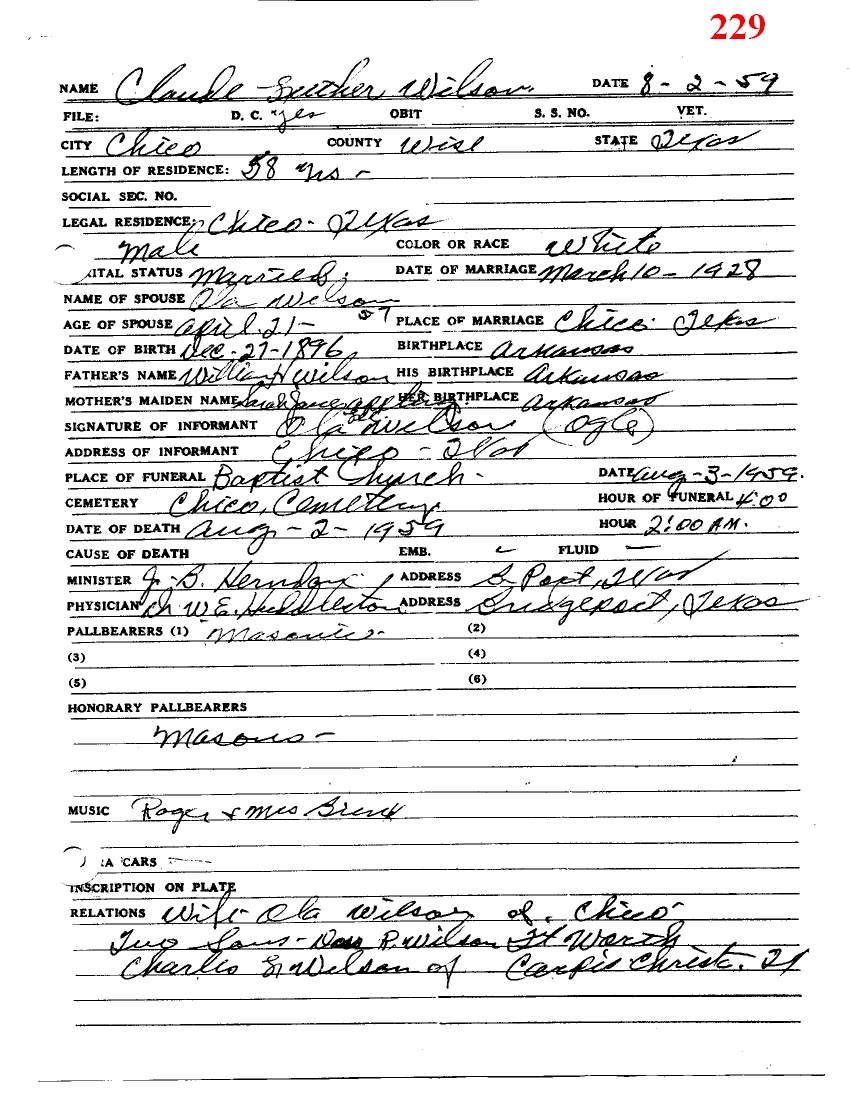 229
NAME Claude Luther Wilson. DATE 8-2-59
FILE: D. C. yes OBIT S. S. NO. VET.
CITY Chico COUNTY Wise STATE Texas
LENGTH OF RESIDENCE: 58 yrs -
SOCIAL SEC. NO.
LEGAL RESIDENCE: Chico - Texas
Male COLOR OR RACE White
ITAL STATUS Married DATE OF MARRIAGE March 10 - 1928
NAME OF SPOUSE Ola Wilson
AGE OF SPOUSE April 21- 57 PLACE OF MARRIAGE Chico Texas
DATE OF BIRTH Dec-27-1896 BIRTHPLACE Arkansas
FATHER'S NAME William H Wilson HIS BIRTHPLACE Arkansas
MOTHER'S MAIDEN NAME Sarah Jane HER BIRTHPLACE Arkansas
SIGNATURE OF INFORMANT Ola Wilson (Ogle)
ADDRESS OF INFORMANT Chico - Tex
PLACE OF FUNERAL Baptist Church - DATE Aug-3-1959.
CEMETERY Chico, Cemetery HOUR OF FUNERAL 4:00
DATE OF DEATH Aug-2-1959 HOUR 2:00 A.M.
CAUSE OF DEATH EMB. FLUID —
MINISTER J. B. Herndon, ADDRESS B. Port, Texas
PHYSICIAN Dr W E Huddleston ADDRESS Bridgeport, Texas
PALLBEARERS (1) Masonic - (2)
(3) (4)
(5) (6)
HONORARY PALLBEARERS
Masons -
MUSIC Roger & Mrs
A CARS
INSCRIPTION ON PLATE
RELATIONS Wife - Ola Wilson of. Chico
Two Sons - Doss R. Wilson Ft Worth
Charles L Wilson of Corpis Christi. Tx